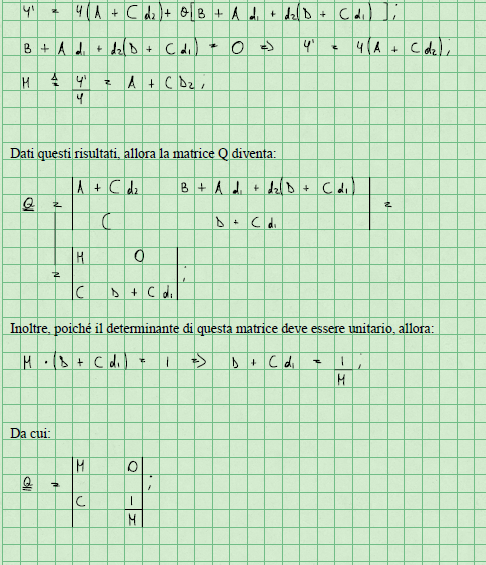 y' = y(A + C d₂) + θ[B + A d₁ + d₂(D + C d₁)];
B + A d₁ + d₂(D + C d₁) = 0 => y' = y(A + C d₂);
M ≜ y'/y = A + C D₂;
Dati questi risultati, allora la matrice Q diventa:
Q = | A + C d₂   B + A d₁ + d₂(D + C d₁) | =
| C   D + C d₁ |
= | M   0 |
| C   D + C d₁ | ;
Inoltre, poiché il determinante di questa matrice deve essere unitario, allora:
M · (D + C d₁) = 1 => D + C d₁ = 1/M ;
Da cui:
Q = | M   0 |
| C   1/M | ;